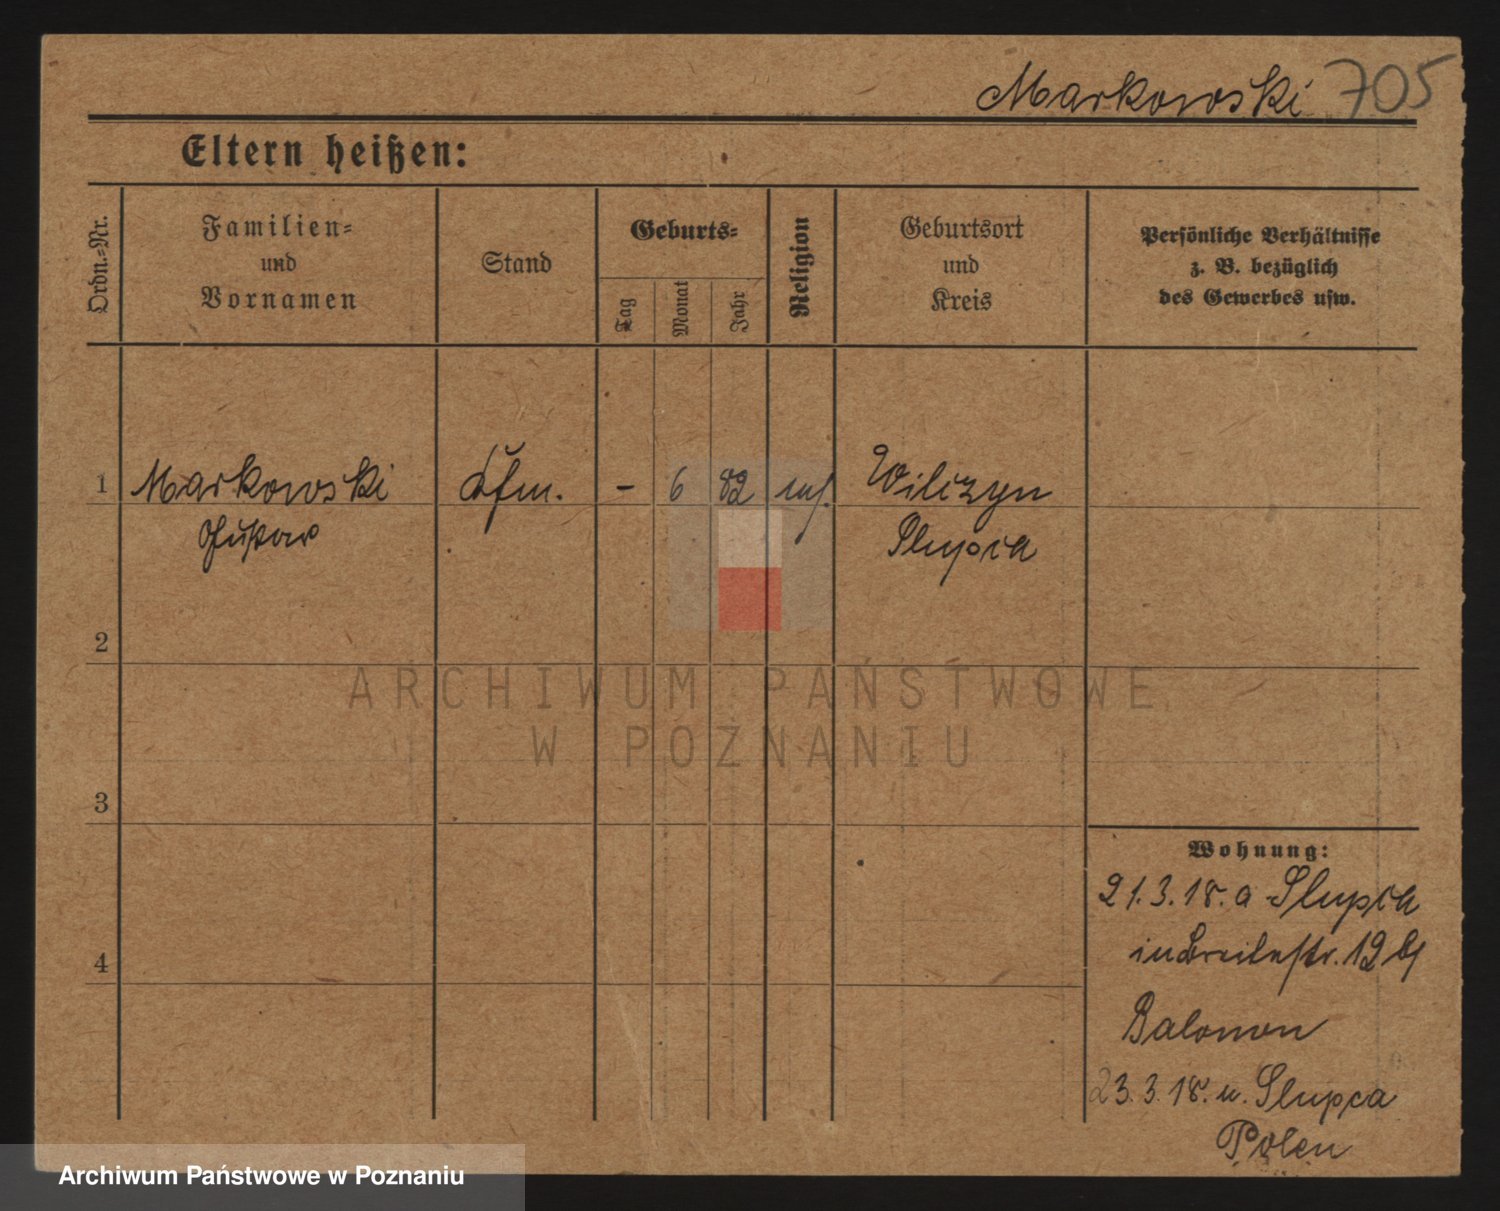 Markowski 705
Eltern heißen:
Ordn.=Nr.
Familien=
und
Vornamen
Stand
Geburts=
Tag
Monat
Jahr
Religion
Geburtsort
und
Kreis
Persönliche Verhältnisse
z. B. bezüglich
des Gewerbes usw.
1 Markowski Kfm. - 6 82 Wilczyn
Gustav Slupca
2
ARCHIWUM PAŃSTWOWE
W POZNANIU
3
Wohnung:
21.3.18. a Slupca
in Breitestr. 12 b/
4
Balomon
23.3.18. n. Slupca
Polen
Archiwum Państwowe w Poznaniu